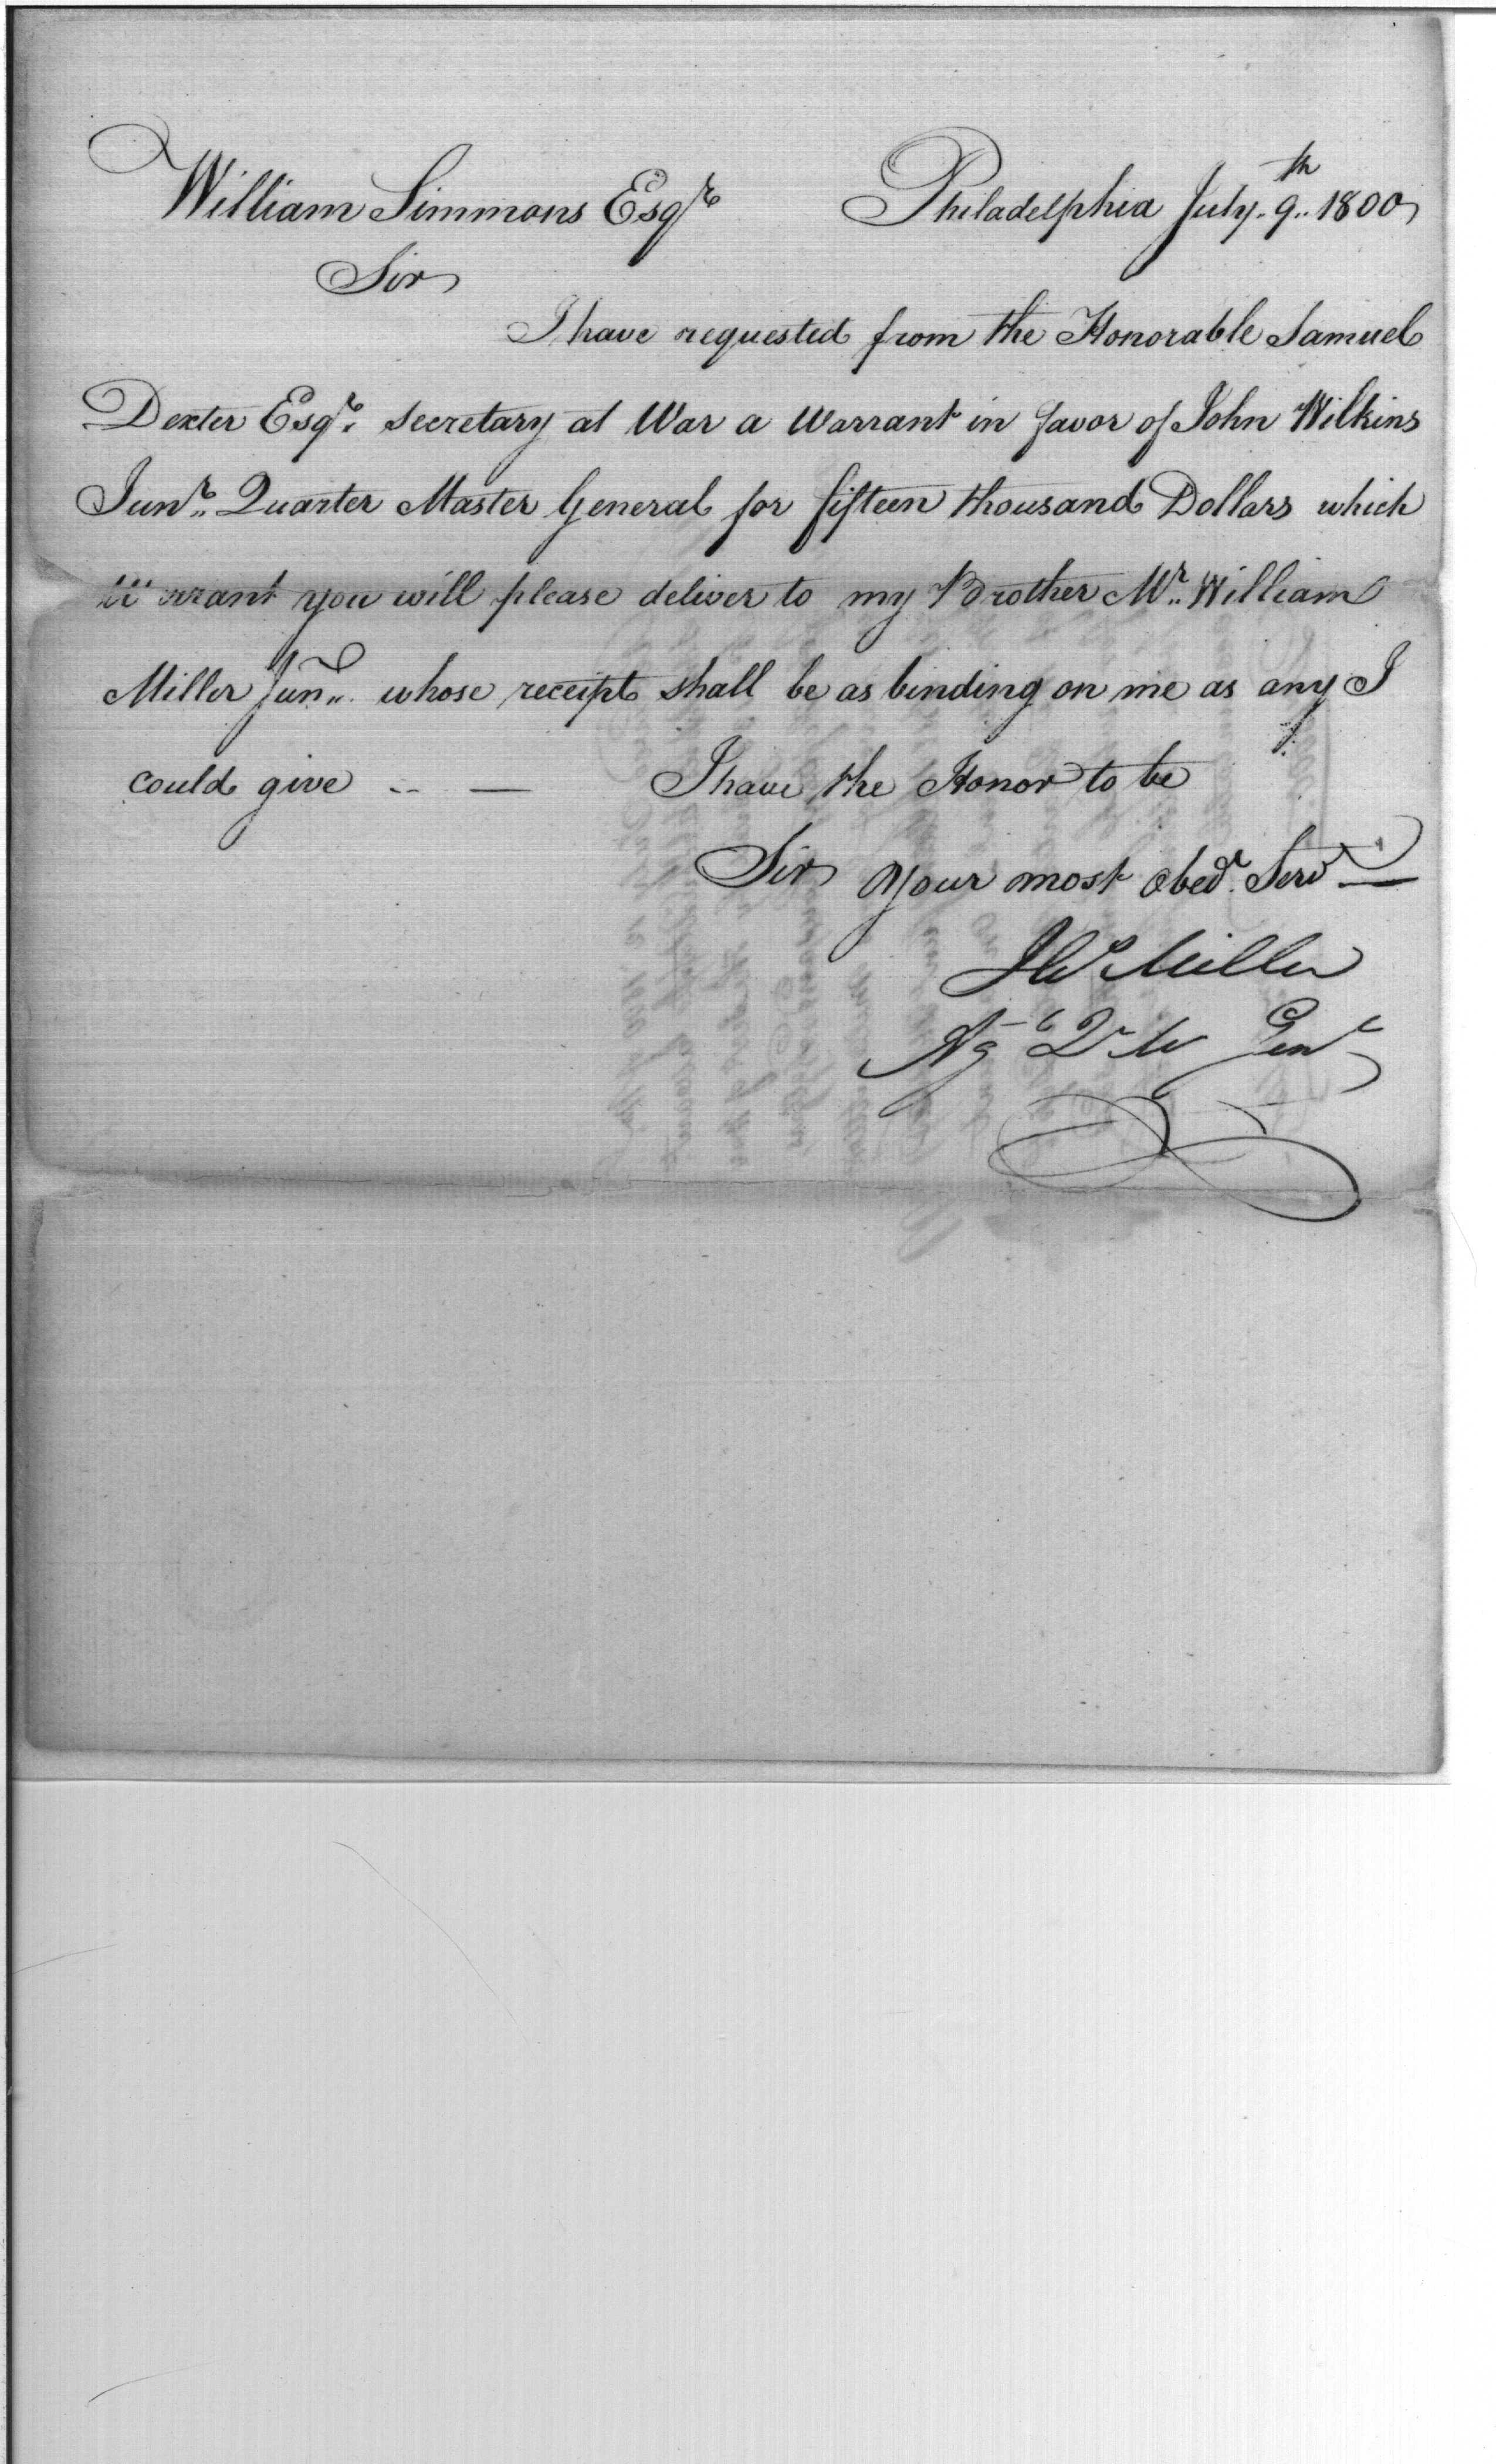 William Simmons Esqr Philadelphia July 9th 1800
Sir
I have requested from the Honorable Samuel
Dexter Esqr. Secretary at War a Warrant in favor of John Wilkins
Junr. Quarter Master General for fifteen thousand Dollars which
Warrant you will please deliver to my Brother Mr. William
Miller Junr. whose receipt shall be as binding on me as any I
could give -- — I have the Honor to be
Sir your most Obedt. Servt —
Jno Miller
Ag Qr M Genl